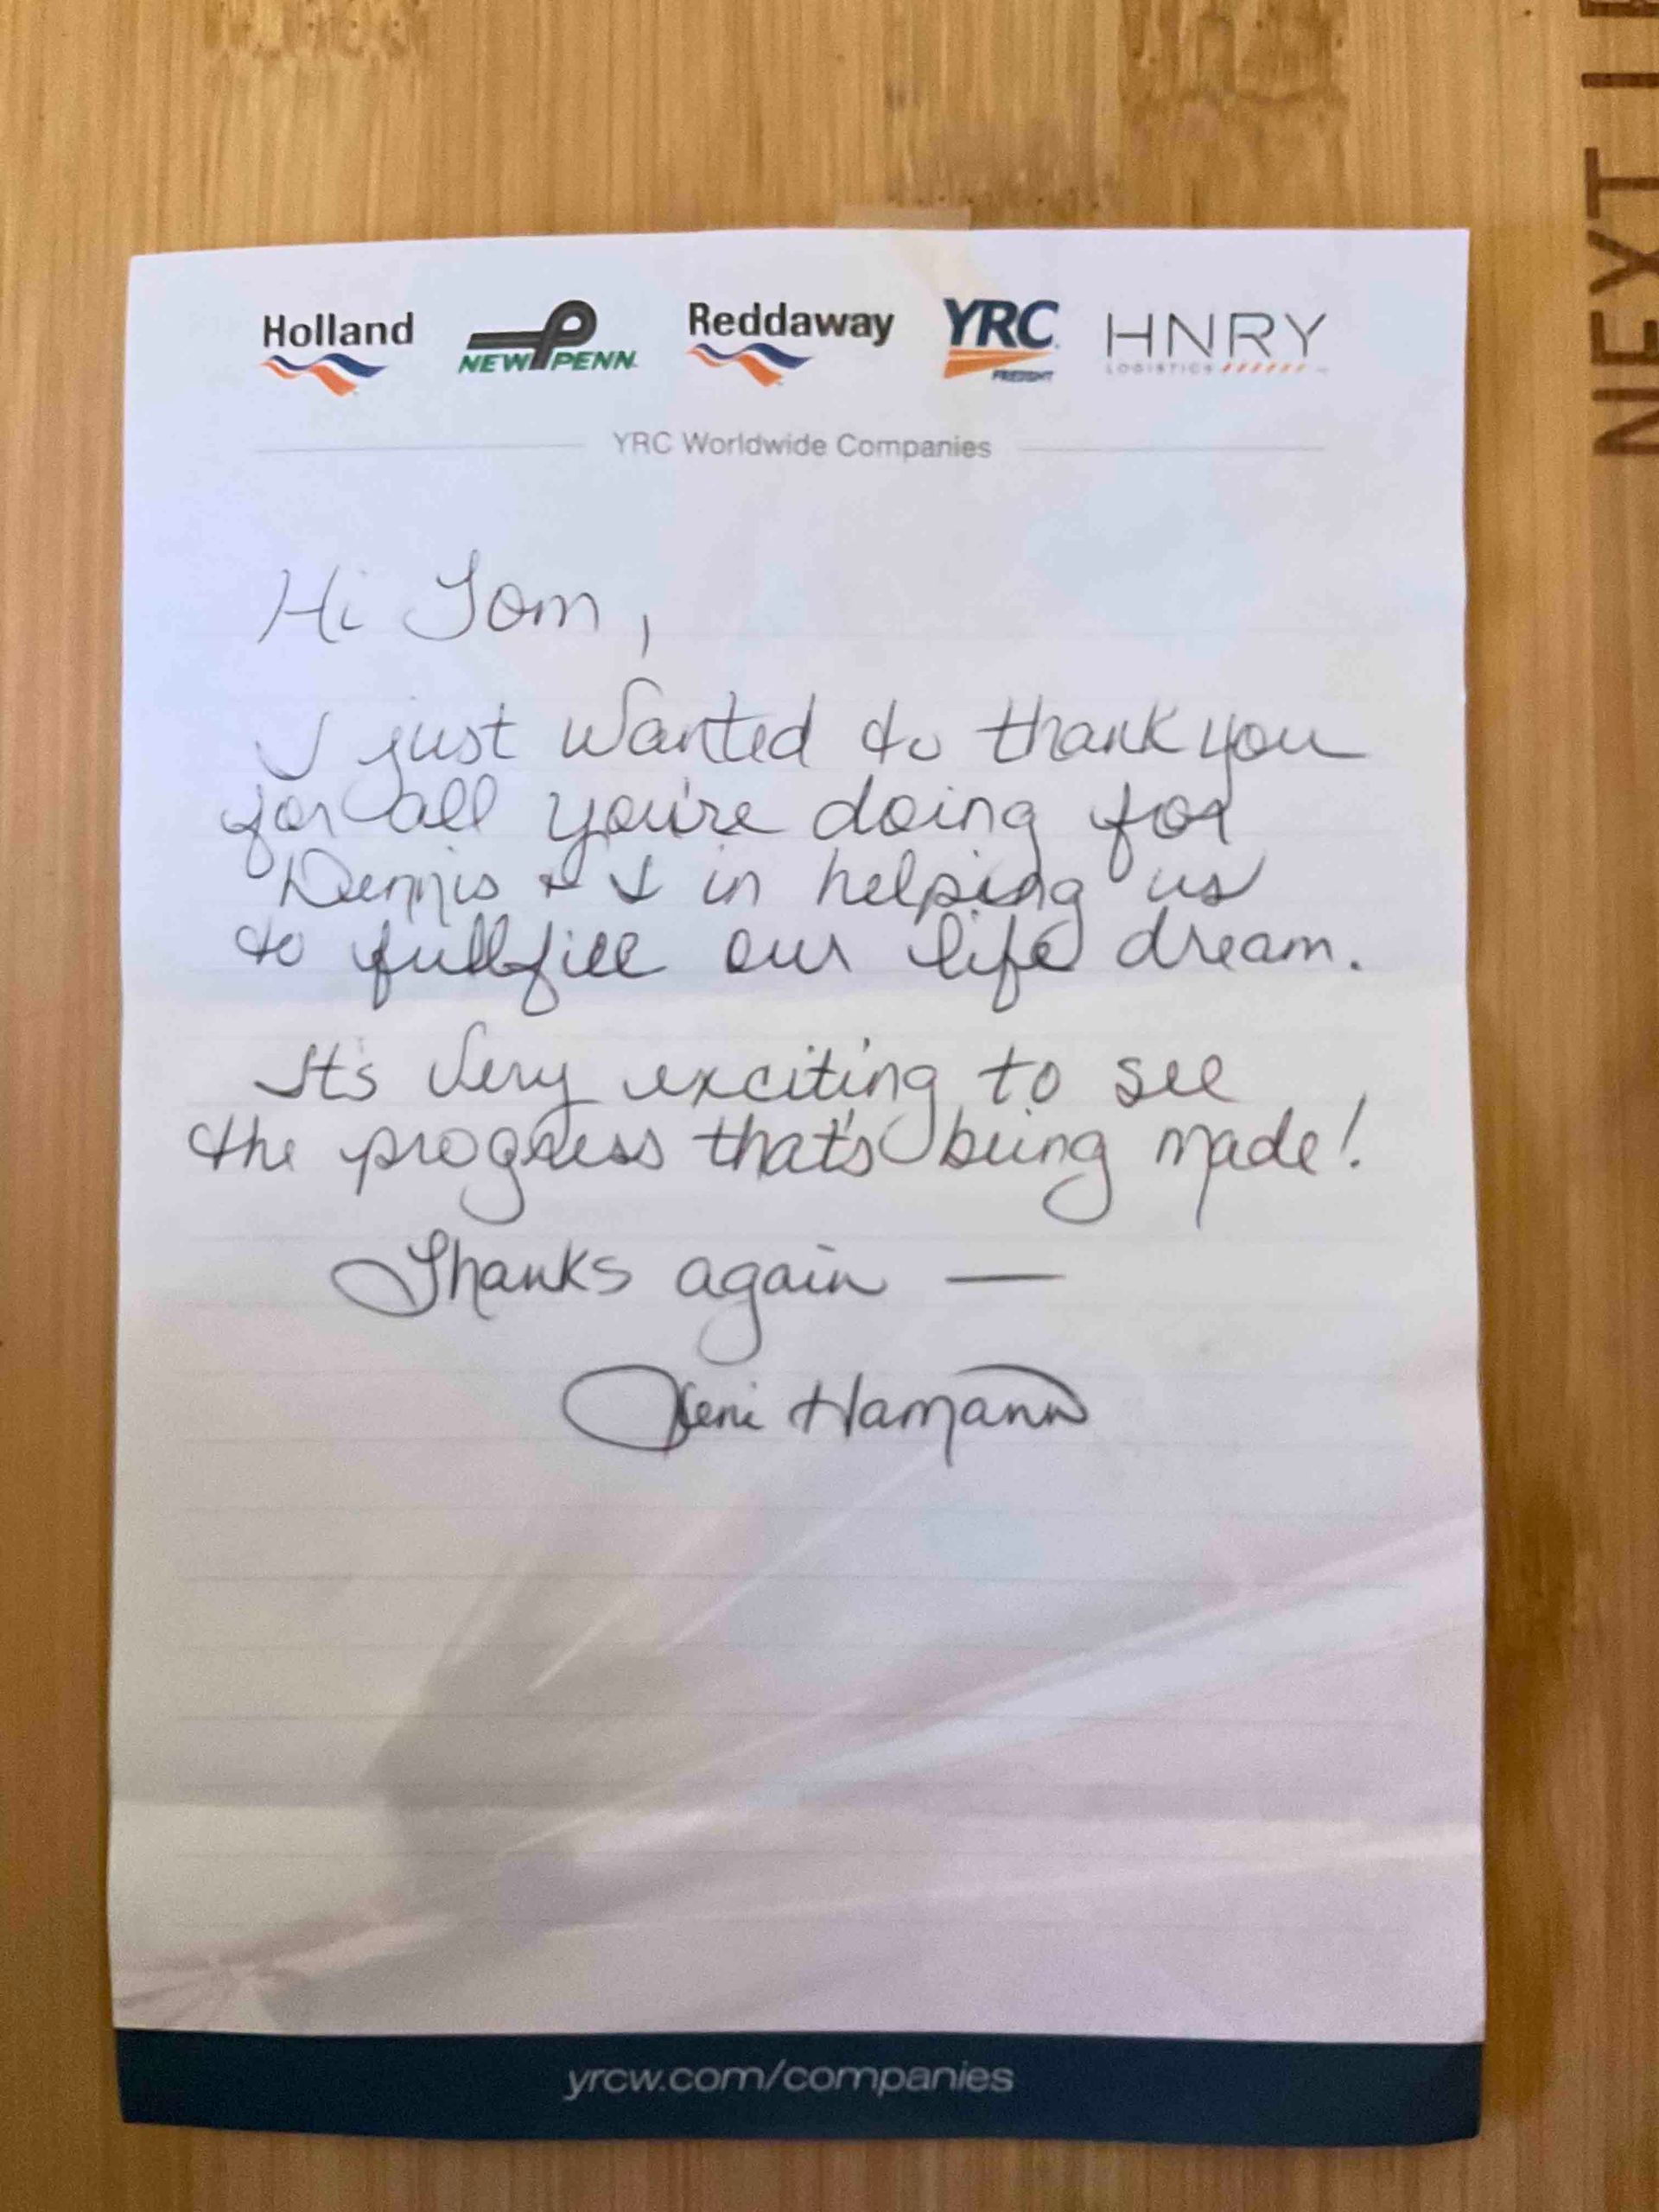 Holland NEW PENN Reddaway YRC FREIGHT HNRY LOGISTICS
YRC Worldwide Companies
Hi Tom,
I just wanted to thank you
for all you're doing for
Dennis & I in helping us
to fullfill our life dream.
It's very exciting to see
the progress that's being made!
Thanks again —
Jeni Hamann
yrcw.com/companies
NEXT